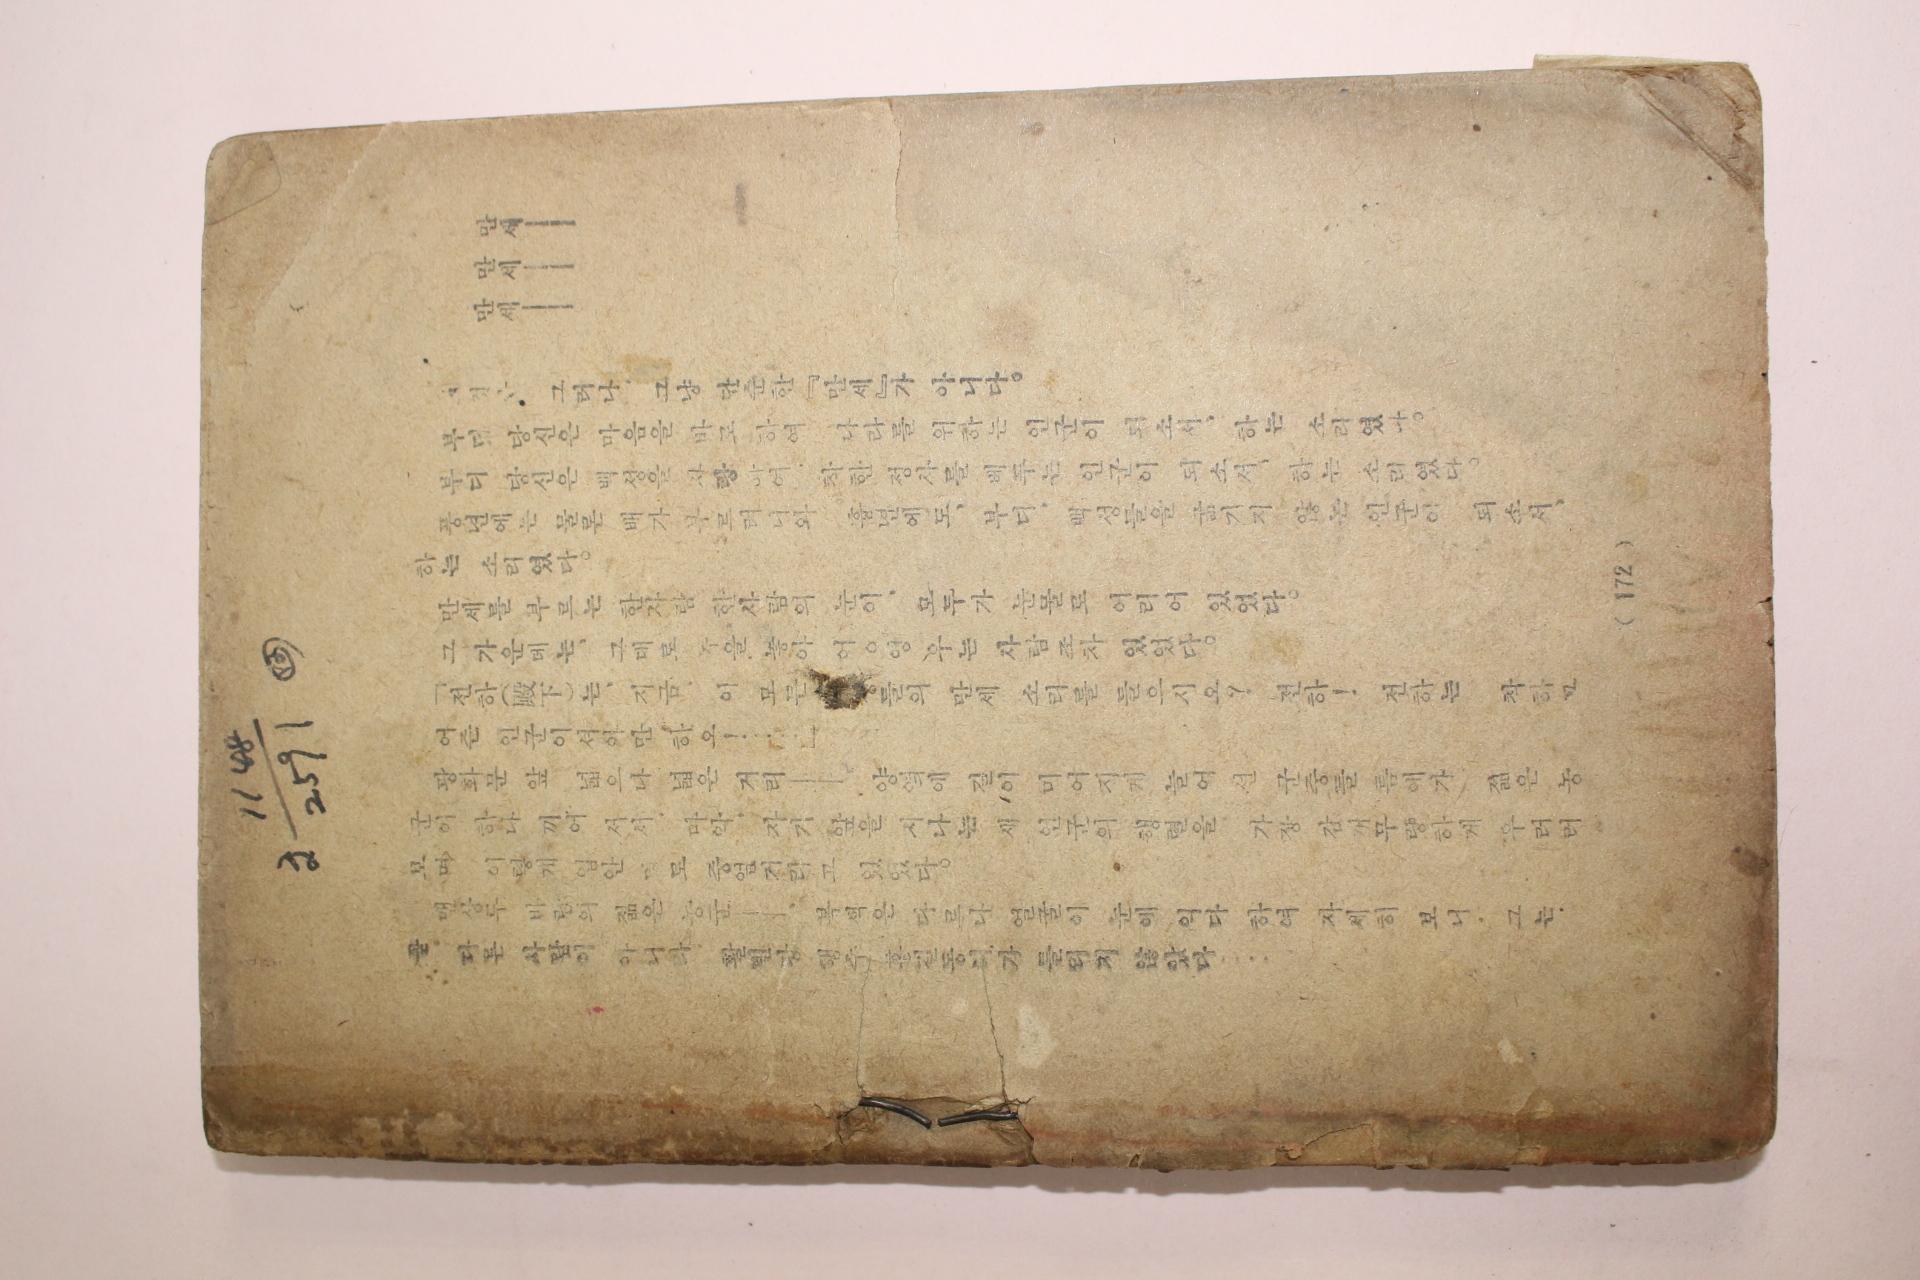 만세── 만세── 만세──
그러나, 그냥 단순한 「만세」가 아니다。
부디 당신은 마음을 바로 하여 나라를 위하는 인군이 되소서, 하는 소리였다。
부디 당신은 백성을 사랑하여 착한 정사를 베푸는 인군이 되소서, 하는 소리였다。
풍년에는 물론 배가 부르려니와 흉년에도, 부디, 백성들을 굶기지 않는 인군이 되소서,
하는 소리였다。
만세를 부르는 한사람 한사람의 눈이, 모두가 눈물로 어리어 있었다。
그 가운데는, 그대로 놓아 우는 사람조차 있었다。
「전하(殿下)는, 지금, 이 모든 들의 만세 소리를 들으시오? 전하! 전하는 착하고
어즌 인군이셔야만 하오!……」
광화문 앞 넓으나 넓은 거리── 양옆에 길이 미어지게 늘어 선 군중들 틈에가 젊은 농
군이 하나 끼여 서서, 마악, 자기 앞을 지나는 새 인군의 행렬을 가장 감개무량하게 우러러
보며 이렇게 중얼거리고 있었다。
맨상투 바람의 젊은 농군──, 복색은 다르나 얼굴이 눈에 익다 하여 자세히 보니, 그는
곧 다른 사람이 아니라, 활빈당 행수 홍길동이가 틀리지 않았다……
(172)
1148
2591